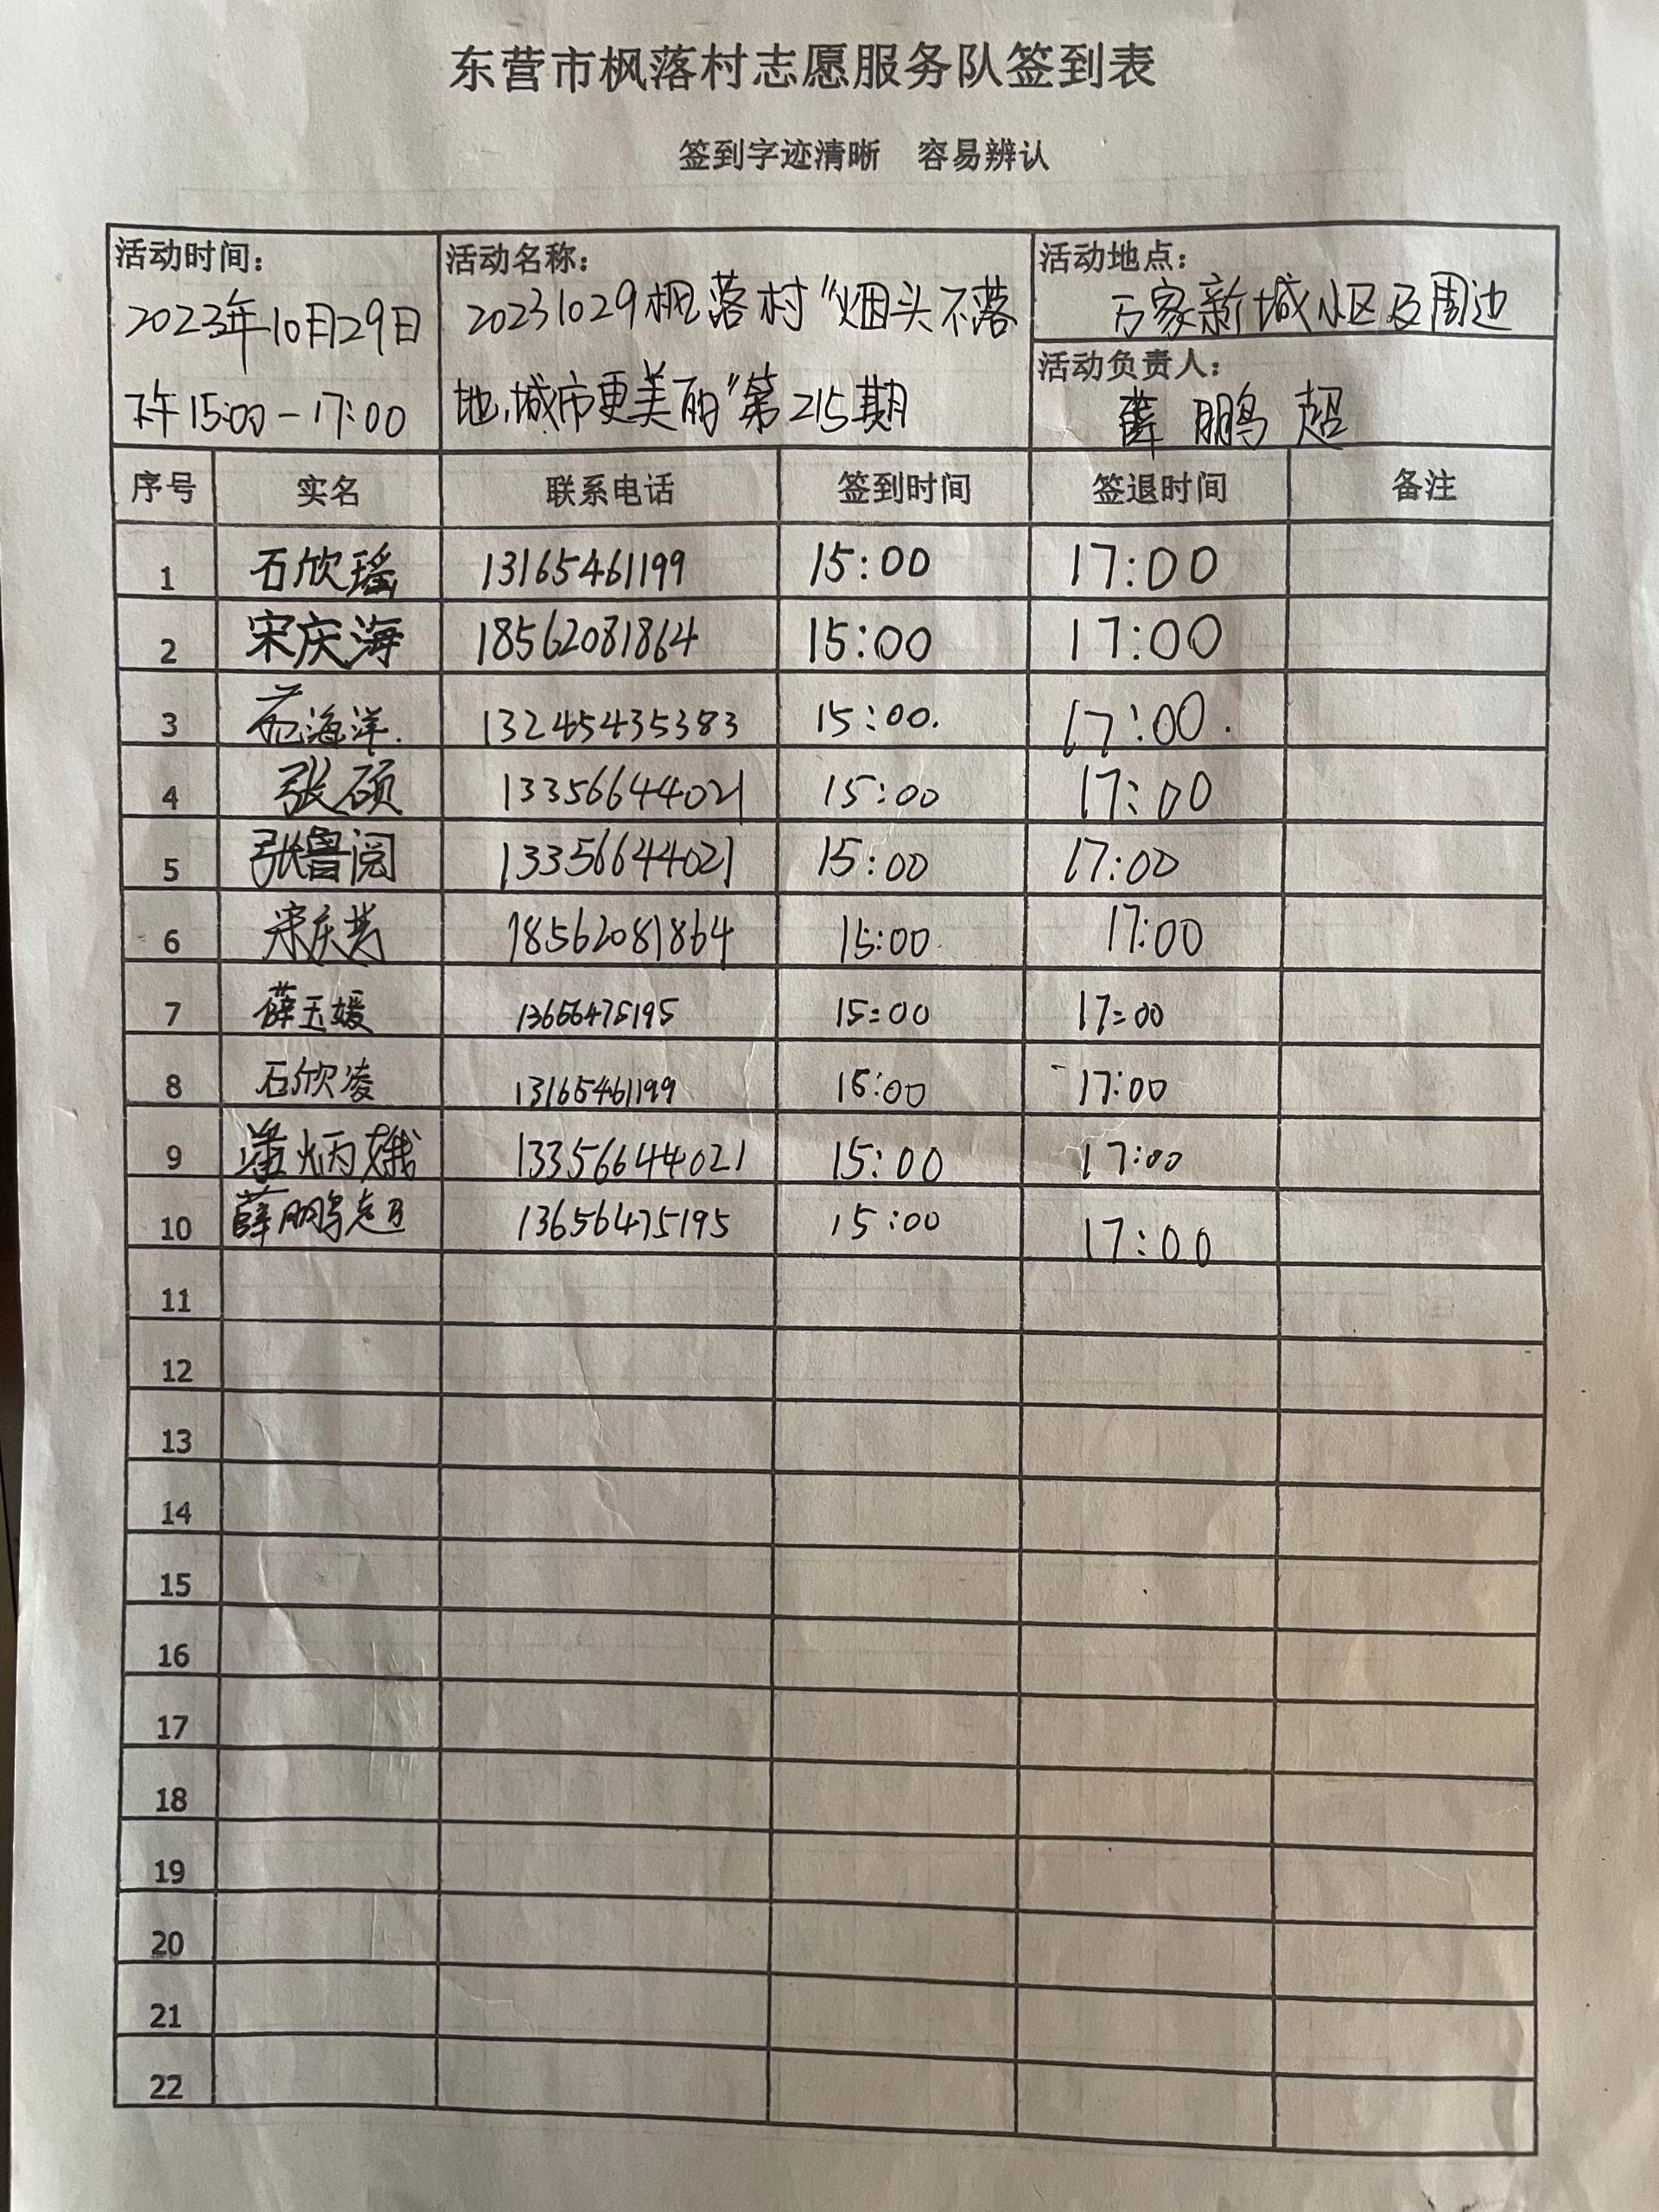 东营市枫落村志愿服务队签到表
签到字迹清晰 容易辨认
活动时间:
2023年10月29日
下午15:00-17:00
活动名称:
20231029枫落村"烟头不落
地,城市更美丽"第215期
活动地点:
万家新城小区及周边
活动负责人:
薛鹏超
序号 实名 联系电话 签到时间 签退时间 备注
1 石欣瑶 13165461199 15:00 17:00
2 宋庆海 18562081864 15:00 17:00
3 海洋. 13245435383 15:00. 17:00.
4 张硕 13356644021 15:00 17:00
5 张鲁阅 13356644021 15:00 17:00
6 宋庆芸 18562081864 15:00 17:00
7 薛玉媛 13656475195 15:00 17:00
8 石欣凌 13165461199 15:00 17:00
9 潘炳娥 13356644021 15:00 17:00
10 薛鹏超 13656475195 15:00 17:00
11
12
13
14
15
16
17
18
19
20
21
22